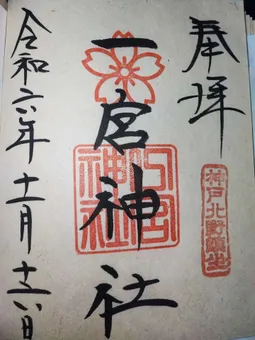 奉拝
一宮神社
一宮神社
神戸北野鎮坐
令和六年十一月十六日